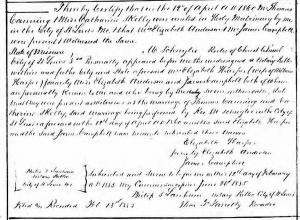 I hereby Certify that on the 12th of April A.D. 1860 Mr Thomas
Canning & Miss Catharine Skelly were united in Holy Matrimony by me
in the City of St Louis Mo. & that Miss Elizabeth Anderson & Mr James Campbell
were present & witnessed the Same
State of Missouri M. Schuyler Rector of Christ Church
City of St Louis Personally appeared before me the undersigned a Notary Public
within and for the City and State aforesaid Elizabeth Harper (wife of William
Harper) formerly Miss Elizabeth Anderson and James Campbell both of whom
are personally known to me and who being by me duly sworn
they were present as witnesses at the marriage of Thomas Canning and Ca-
tharine Skelly, said marriage being performed by Rev M. Schuyler in the City of
St Louis on the 12th day of April 1860
and the Said James Campbell have hereunto subscribed their names
Elizabeth Harper
formerly Elizabeth Anderson
James Campbell
Subscribed and sworn to before me this 12th day of February
A.D. 1883 My Commission expires
Notary Public City of St Louis
Filed & Recorded Feb 13th 1883 Recorder